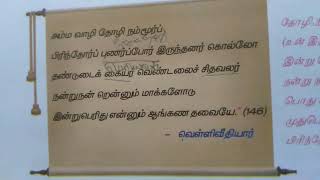 அம்ம வாழி தோழி நம்மூர்ப்
பிரிந்தோர்ப் புணர்ப்போர் இருந்தனர் கொல்லோ
தண்டுடைக் கையர் வெண்டலைச் சிதவலர்
நன்றுநன் றென்னும் மாக்களோடு
இன்றுபெரிது என்னும் ஆங்கண தவையே." (146)
- வெள்ளிவீதியார்
தோழி,
(உன் இ
இன்று
நன்று
பொது
முதுபெ
இன்று